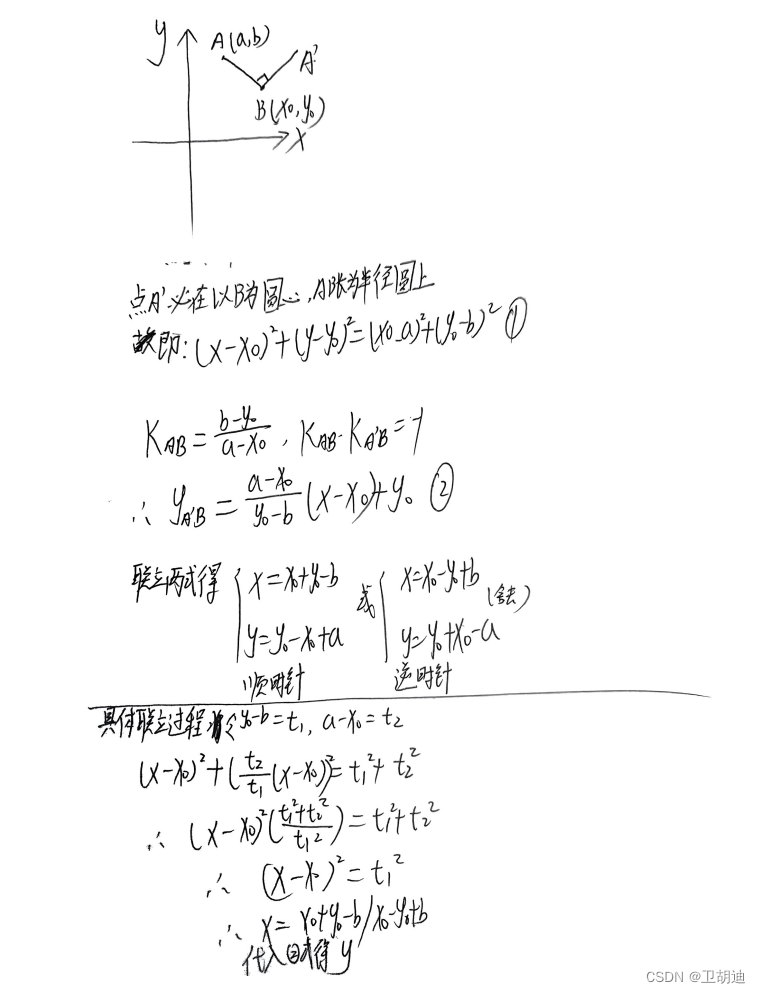 y
A(a,b)
A'
B(x₀,y₀)
x
点A'必在以B为圆心,AB长为半径圆上
故即:(x-x₀)²+(y-y₀)²=(x₀-a)²+(y₀-b)² ①
K_AB=(b-y₀)/(a-x₀), K_AB·K_A'B=-1
∴ y_A'B=(a-x₀)/(y₀-b)(x-x₀)+y₀ ②
联立两式得 { x=x₀+y₀-b 或 { x=x₀-y₀+b
y=y₀-x₀+a y=y₀+x₀-a (舍去)
顺时针 逆时针
具体联立过程 令y₀-b=t₁, a-x₀=t₂
(x-x₀)²+(t₂/t₁(x-x₀))²=t₁²+t₂²
∴ (x-x₀)²((t₁²+t₂²)/t₁²)=t₁²+t₂²
∴ (x-x₀)²=t₁²
∴ x=x₀+y₀-b/x₀-y₀+b
代入②式得y
CSDN @卫胡迪